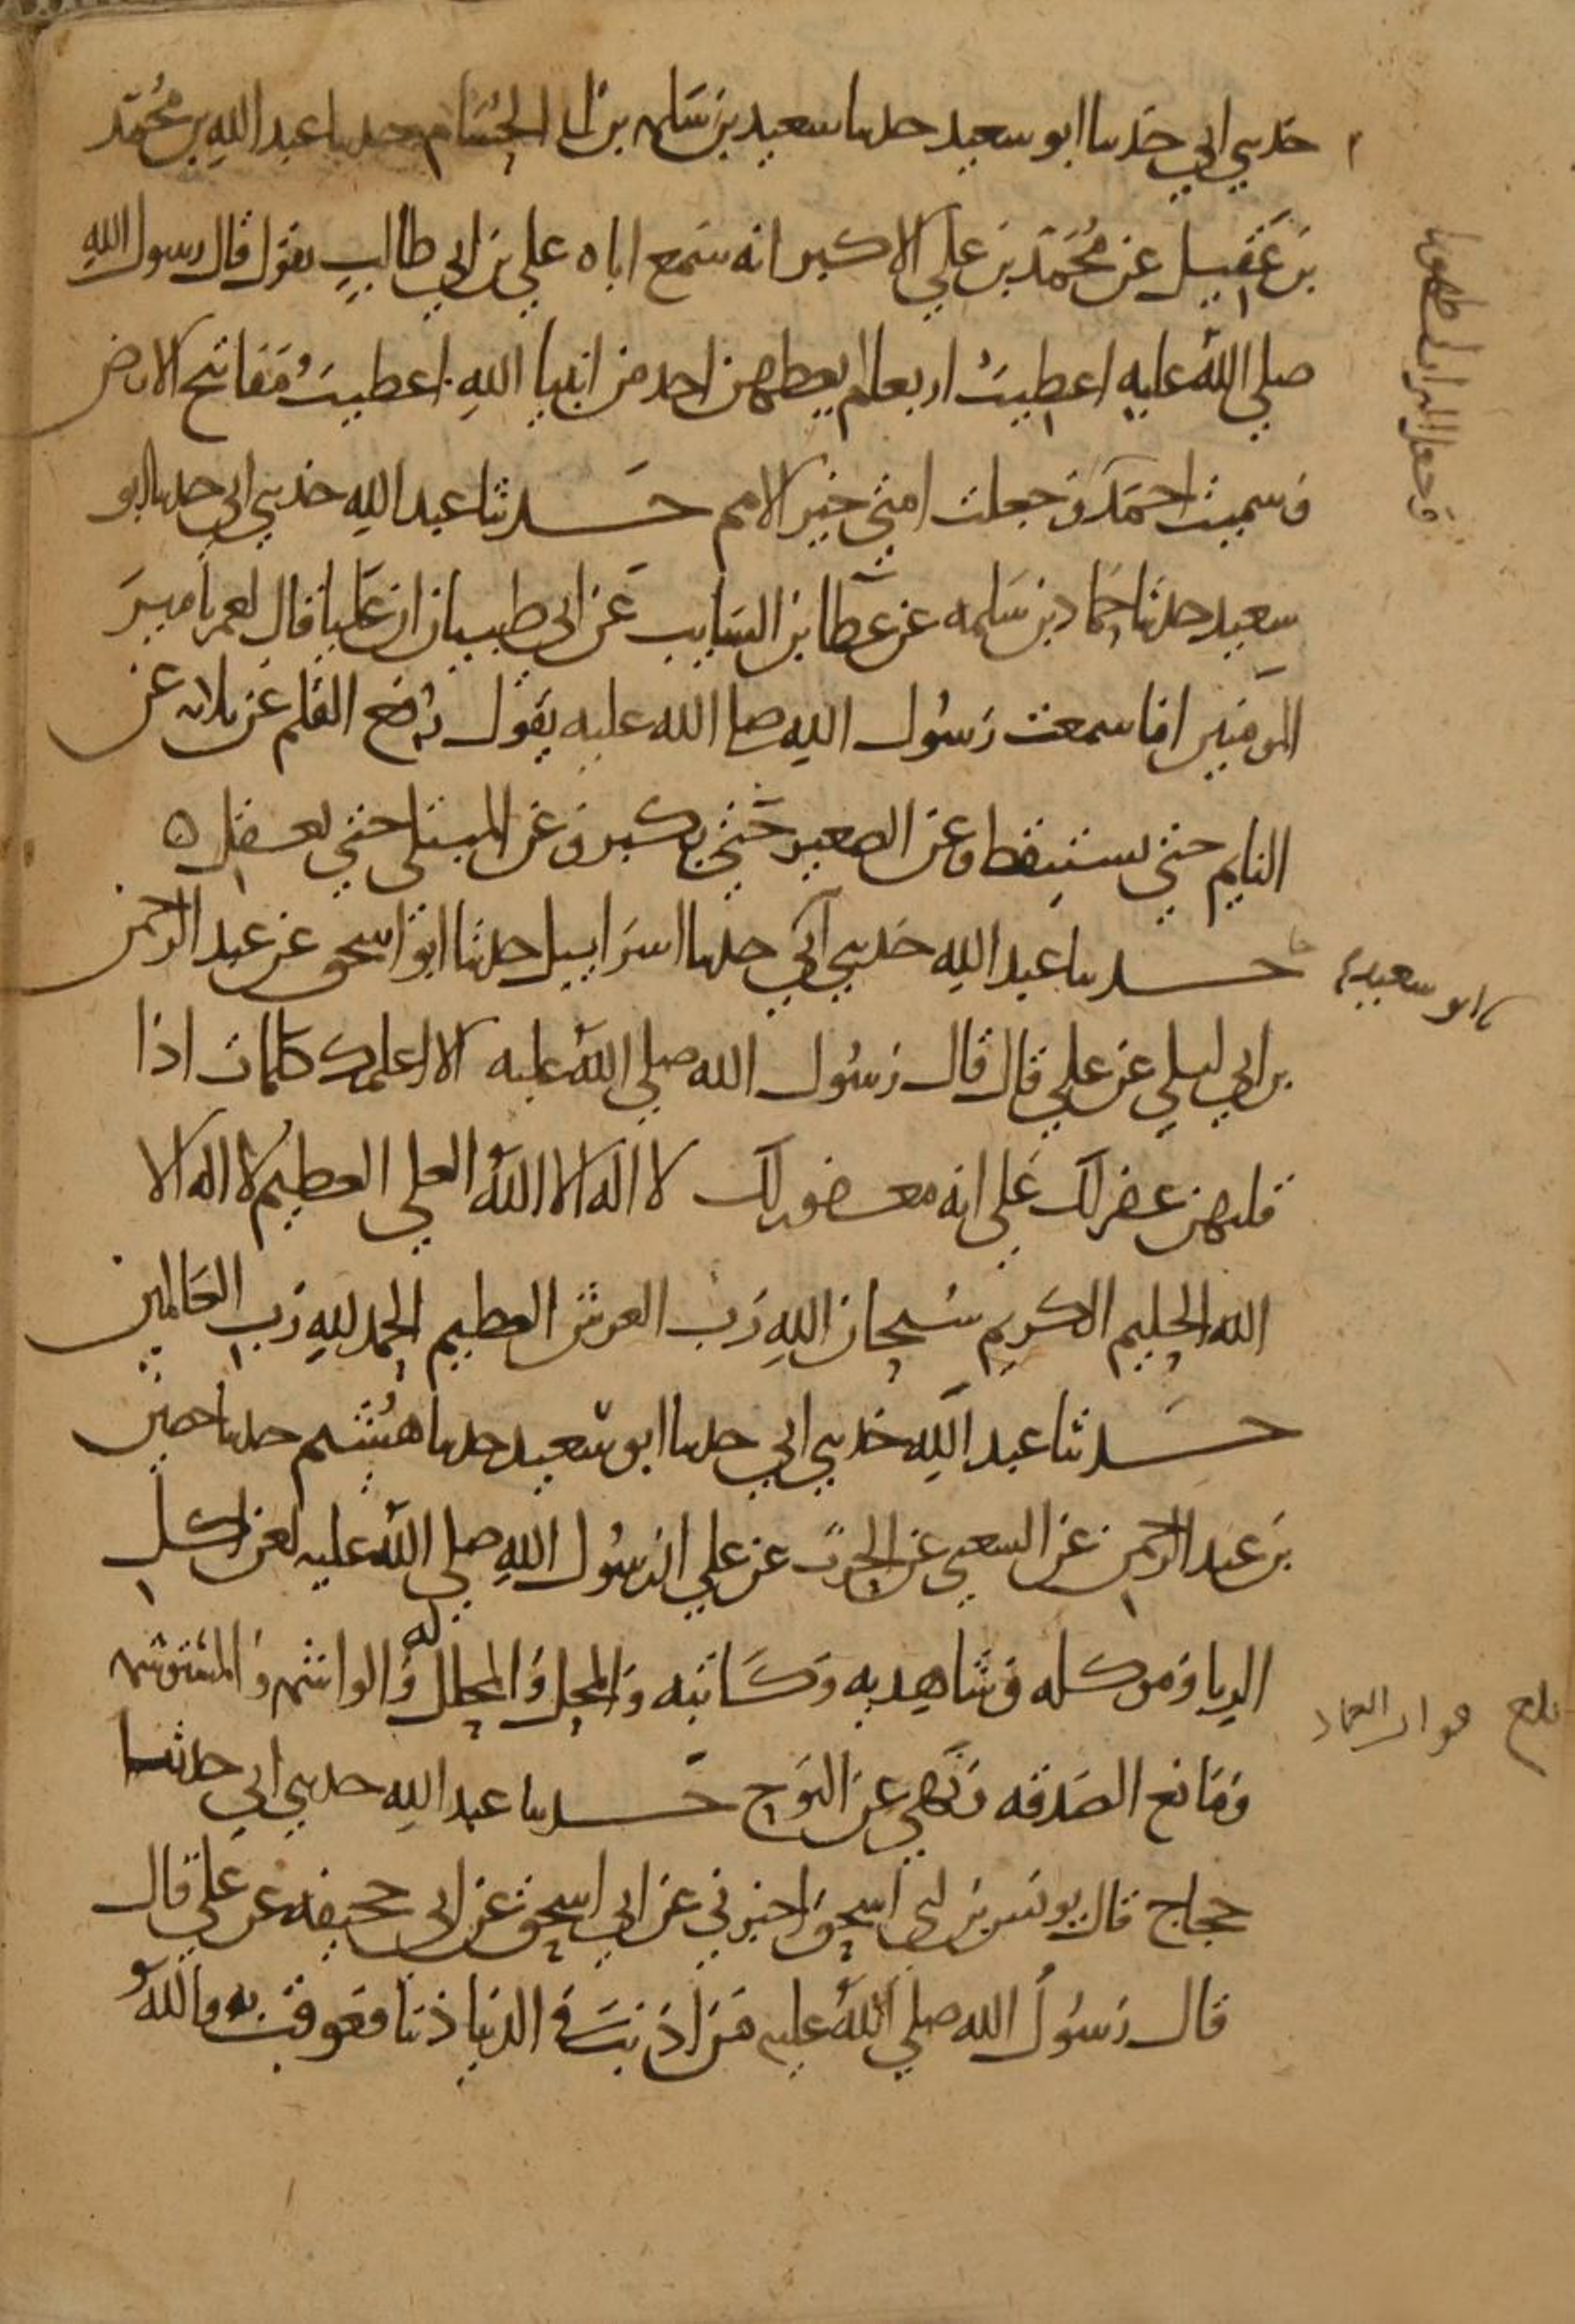 حدثني ابي حدثنا ابو سعيد حدثنا سعيد بن سلمه بن ابي الحسام حدثنا عبد الله بن محمد
بن عَقيل عن مُحَمّد بن علي الاكبر انه سَمع اباه علي بن ابي طالبٍ يقول قال رسول اللهِ
صلي اللهُ عليه اعطيتُ اربعا لم يعطهن احد من انبيا اللهِ اعطيتُ مَفاتح الارض
وسميت احمَد وجعلت امتي خير الامم حَدثنا عبد الله حدثني ابي حدثنا ابو
سعيد حدثنا حَماد بن سَلمه عن عطا بن السَايب عَن ابي ظبيان ان عَليا قال لعمر يا ميرَ
المومنين اما سمعت رَسُول الله صلى الله عليه يقول رُفع القلم عن ثلاثه عن
النايم حتي يستيقظ وعن الصغير حَتي يكبر وعن المبتلي حتي يعقل ه
حدثنا عبد الله حدثني ابي حدثنا اسرَاييل حدثنا ابو اسحق عن عبد الرحمن
بن ابي ليلي عن علي قال قال رَسُول الله صلي اللهُ عليه الا اعلمك كلمات اذا
قلتهن غفر لك عَلي انه مغفور لك لا اله الا اللهُ العلي العظيمُ لا اله الا
الله الحليم الكريم سُبحان اللهِ رَب العرش العظيم الحمد للهِ رَب العَالمين
حَدثنا عبد اللهِ حدثني ابي حدثنا ابو سَعيد حدثنا هُشيم حدثنا حصين
بن عبد الرحمن عن الشعبي عن الحرث عن علي ان رسُول اللهِ صلي اللهُ عليه لعن اكل
الربا وَموكله وشاهديه وَكَاتبه وَالمحل وَالمحلل له وَالواشمه وَالمستوشمه
وَمَانع الصَدقه وَنَهي عن النوح حَدثنا عبد الله حدثني ابي حدثنا
حجاج قال يونس بن ابي اسحق اخبرني عن ابي اسحق عن ابي جحيفه عن علي قال
قال رَسُولُ الله صلي اللهُ عليه مَن اذنبَ في الدنيا ذنبا فعوقب به فاللهُ
وجعل التراب لي طهورا
ابو سعيد
بلغ